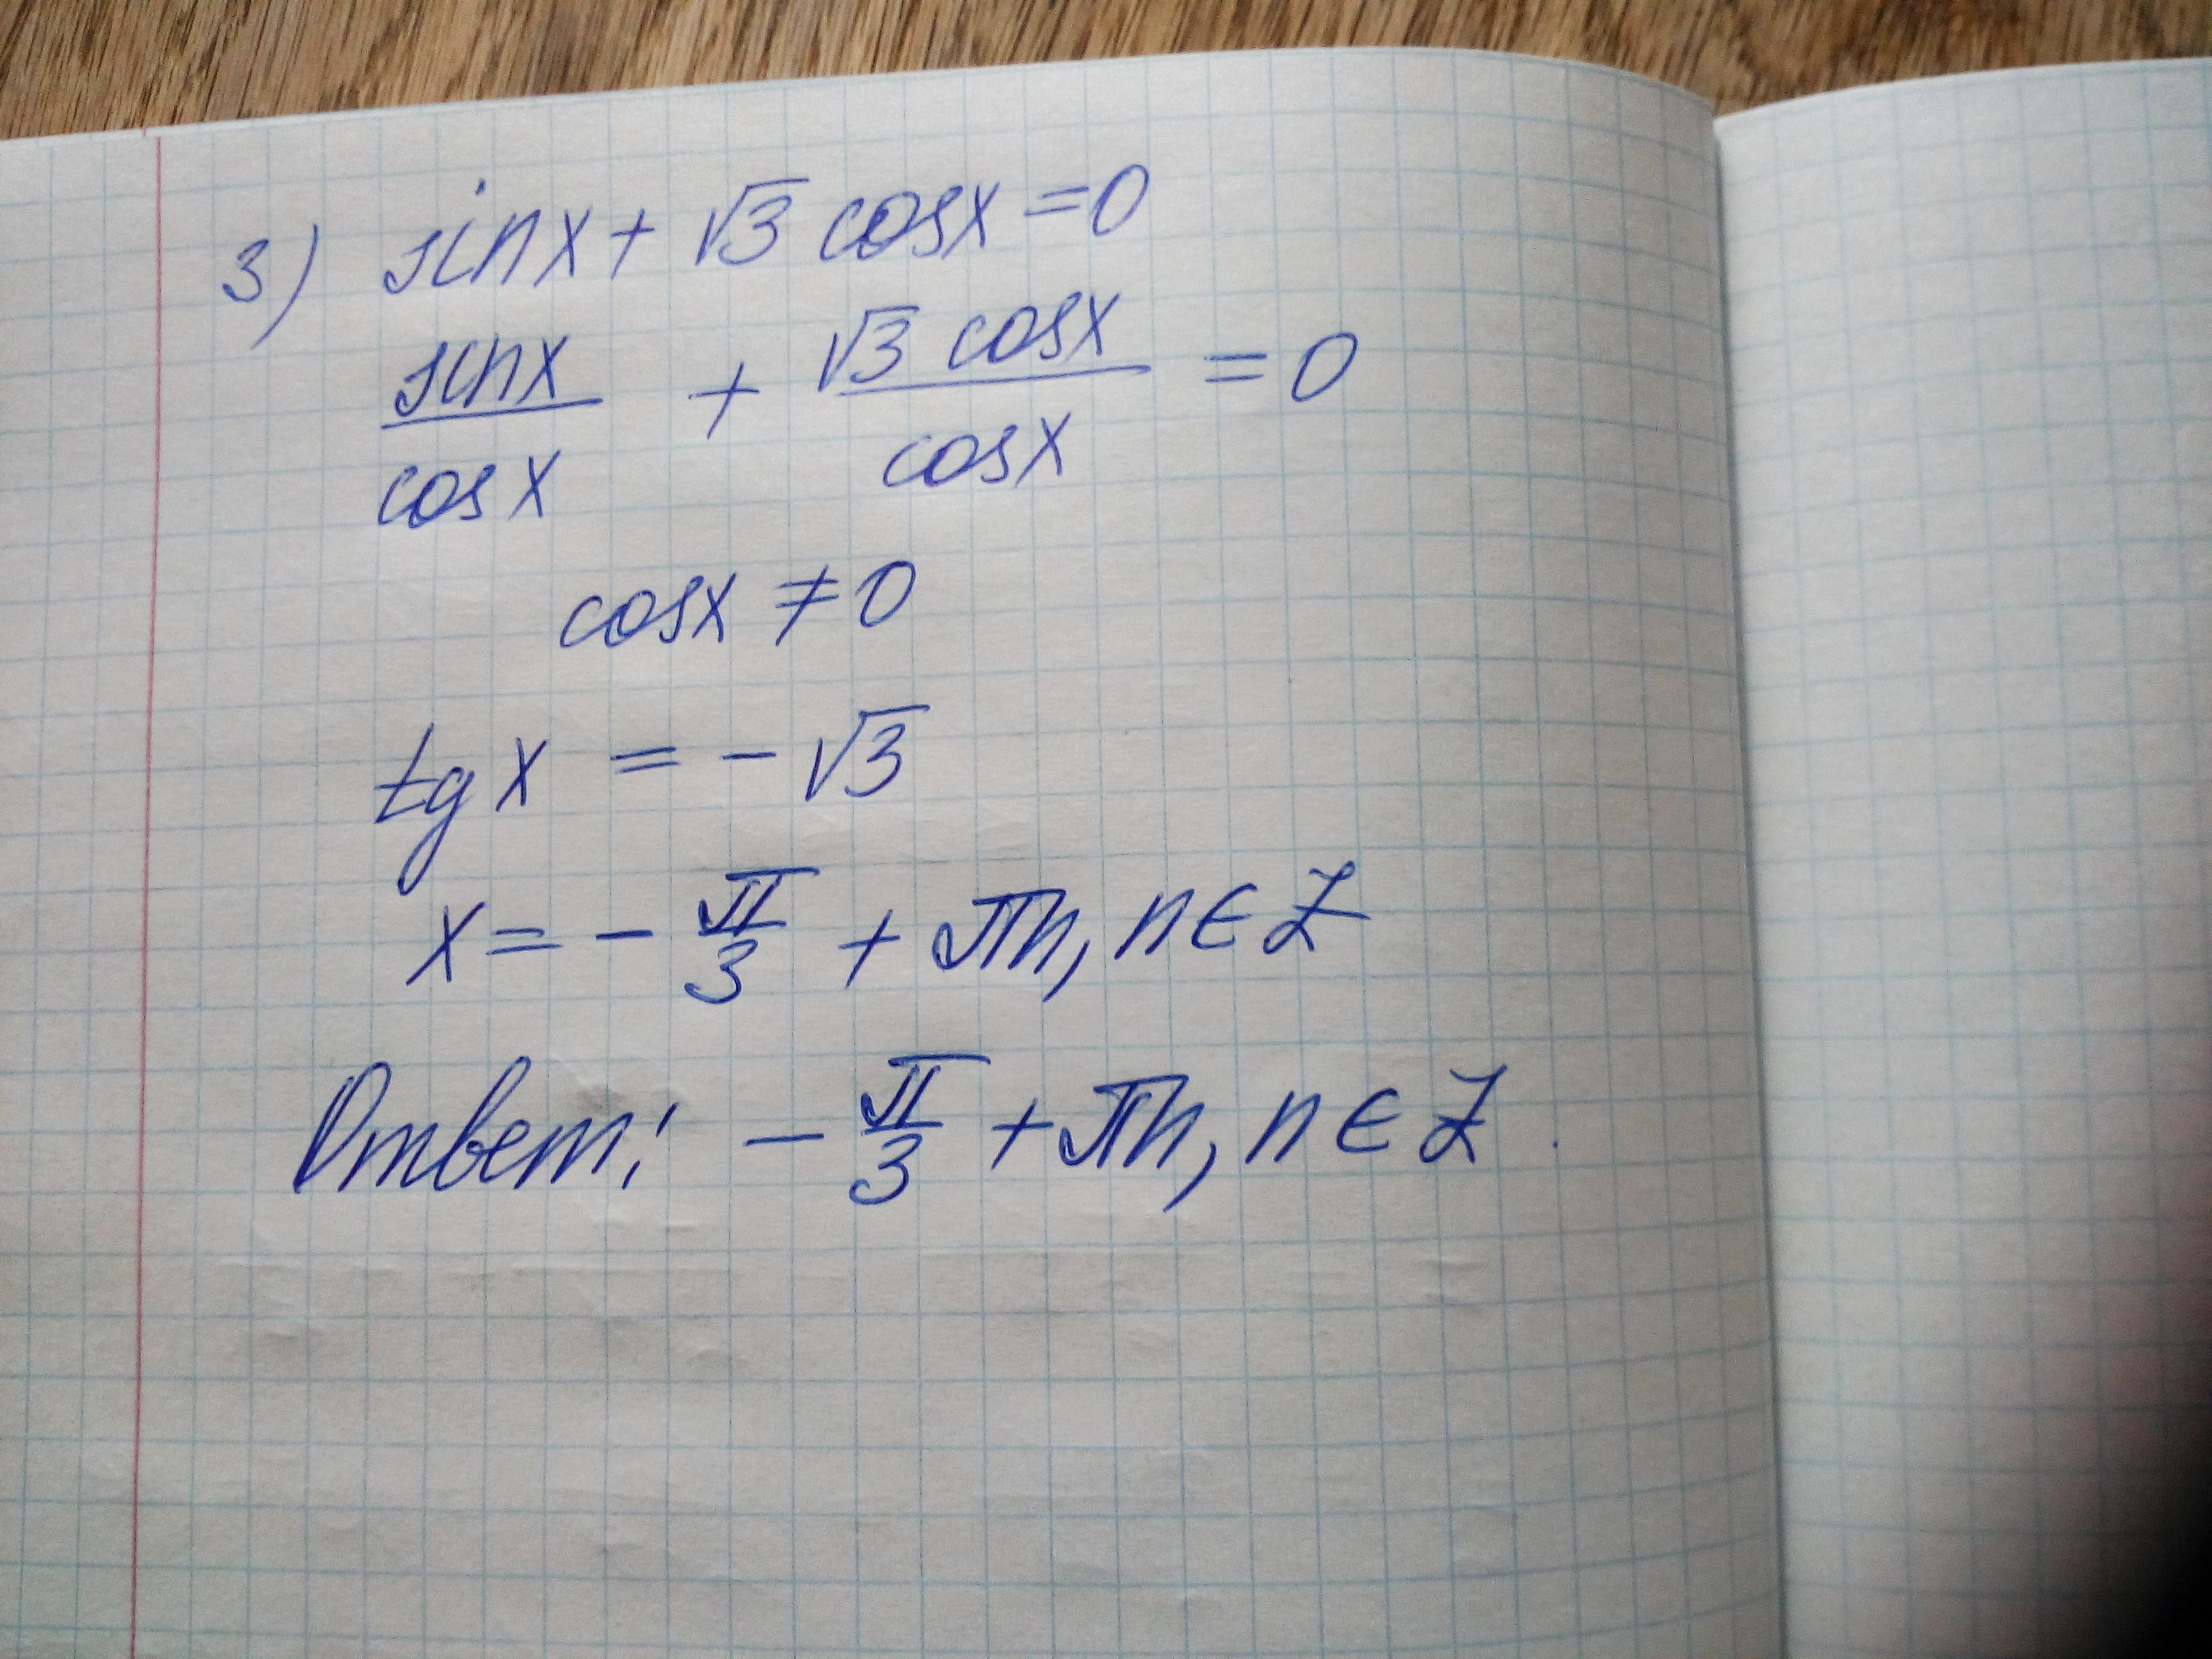 3) sinx + √3 cosx = 0
sinx/cosx + √3 cosx/cosx = 0
cosx ≠ 0
tgx = -√3
x = -π/3 + πn, n∈Z
Ответ: -π/3 + πn, n∈Z.